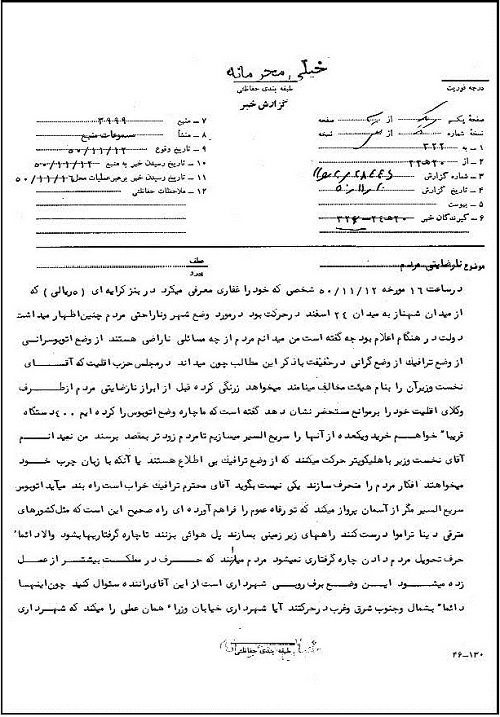 خیلی محرمانه
طبقه بندی حفاظتی
گزارش خبر
درجه فوریت
صفحه یک از صفحه
نسخه شماره از نسخه
۱ - به ۳۲۲
۲ - از ۲۰ه۲۲
۳ - شماره گزارش
۴ - تاریخ گزارش
۵ - پیوست
۶ - گیرندگان خبر
۷ - منبع ۳۹۹۹
۸ - منشأ مسموعات منبع
۹ - تاریخ وقوع ۵۰/۱۱/۱۲
۱۰ - تاریخ رسیدن خبر به منبع ۵۰/۱۱/۱۲
۱۱ - تاریخ رسیدن خبر برهبرعملیات محل ۵۰/۱۱/۱۶
۱۲ - ملاحظات حفاظتی
موضوع نارضایتی مردم
عطف
پیرو
در ساعت ۱۶ مورخه ۵۰/۱۱/۱۲ شخصی که خود را غفاری معرفی میکرد در بنز کرایه ای (۵ ریالی) که
از میدان شهناز به میدان ۲۴ اسفند در حرکت بود در مورد وضع شهر وناراحتی مردم چنین اظهار میداشت
دولت در هنگام اعلام بودجه گفته است من میدانم مردم از چه مسائلی ناراضی هستند از وضع اتوبوسرانی
از وضع ترافیک از وضع گرانی در حقیقت با ذکر این مطالب چون میداند در مجلس حزب اقلیت که آقای
نخست وزیر آن را بنام هیئت مخالف مینامند میخواهد زرنگی کرده قبل از ابراز نارضایتی مردم از طرف
وکلای اقلیت خود را بر موانع مستحضر نشان دهد گفته است که ما چاره وضع اتوبوس را کرده ایم ۴۰۰ دستگاه
قریبا" خواهیم خرید ویکعده از آنها را سریع السیر میسازیم تا مردم زودتر بمقصد برسند من نمیدانم
آقای نخست وزیر با هلیکوپتر حرکت میکنند که از وضع ترافیک بی اطلاع هستند یا آنکه با زبان چرب خود
میخواهند افکار مردم را منحرف سازند یکی نیست بگوید آقای محترم ترافیک خراب است راه بند میآید اتوبوس
سریع السیر مگر از آسمان پرواز میکند که تو رفاه عموم را فراهم آورده ای راه صحیح این است که مثل کشورهای
مترقی دنیا ترامو درست کنند راههای زیر زمینی بسازند پل هوائی بزنند تا چاره گرفتاریها بشود والا دائما"
حرف تحویل مردم دادن چاره گرفتاری نمیشود مردم میدانند که حرف در مملکت بیشتر از عمل
زده میشود این وضع برف روبی شهرداری است از این آقای راننده سئوال کنید چون اینها
دائما" بشمال وجنوب شرق وغرب در حرکتند آیا شهرداری خیابان وزراء همان عملی را میکند که شهرداری
طبقه بندی حفاظتی
۲۶-۱۳۰